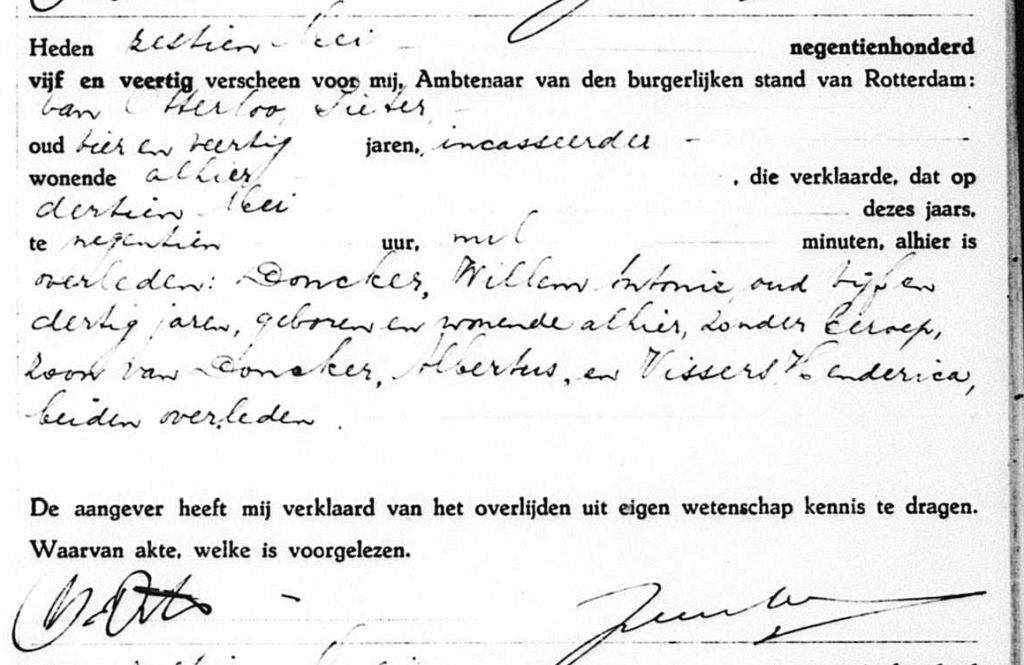 Heden zestien Mei negentienhonderd
vijf en veertig verscheen voor mij, Ambtenaar van den burgerlijken stand van Rotterdam:
van Otterloo, Pieter,
oud vier en veertig jaren, incasseerder
wonende alhier , die verklaarde, dat op
dertien Mei dezes jaars,
te negentien uur, nul minuten, alhier is
overleden: Doncker, Willem Antonie, oud vijf en
dertig jaren, geboren en wonende alhier, zonder beroep,
zoon van Doncker, Albertus, en Vissers, Henderica,
beiden overleden.
De aangever heeft mij verklaard van het overlijden uit eigen wetenschap kennis te dragen.
Waarvan akte, welke is voorgelezen.